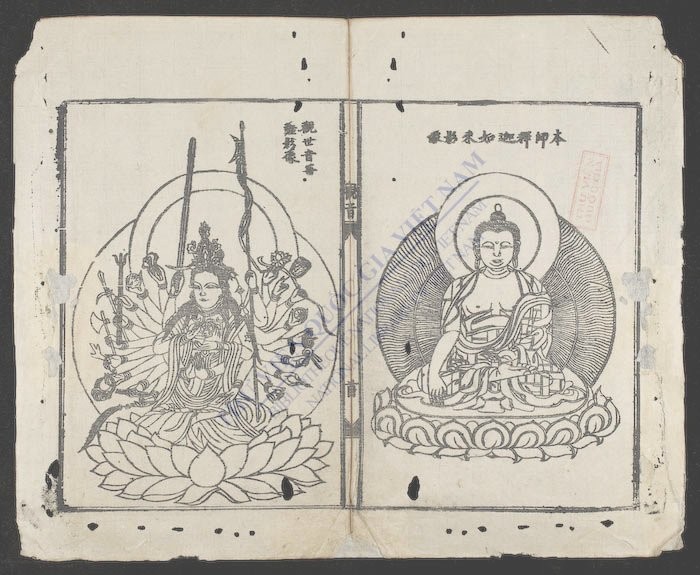 本師釋迦如来影像
觀音
首
觀世音菩
薩影像
THƯ VIỆN QUỐC GIA VIỆT NAM